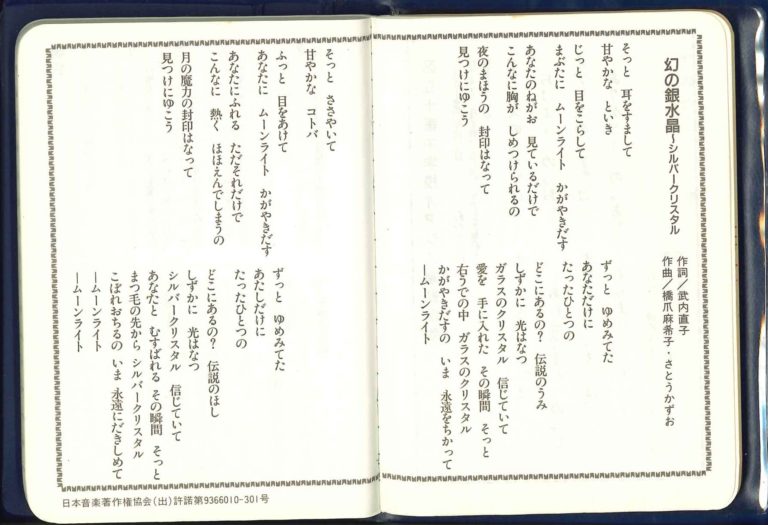 幻の銀水晶～シルバークリスタル
作詞／武内直子
作曲／橋爪麻希子・さとうかずお
そっと　耳をすまして
甘やかな　といき
じっと　目をこらして
まぶたに　ムーンライト　かがやきだす
あなたのねがお　見ているだけで
こんなに胸が　しめつけられるの
夜のまほうの　封印はなって
見つけにゆこう
ずっと　ゆめみてた
あなただけに
たったひとつの
どこにあるの？　伝説のうみ
しずかに　光はなつ
ガラスのクリスタル　信じていて
愛を　手に入れた　その瞬間　そっと
右うでの中　ガラスのクリスタル
かがやきだすの　いま　永遠をちかって
―ムーンライト
そっと　ささやいて
甘やかな　コトバ
ふっと　目をあけて
あなたに　ムーンライト　かがやきだす
あなたにふれる　ただそれだけで
こんなに　熱く　ほほえんでしまうの
月の魔力の封印はなって
見つけにゆこう
ずっと　ゆめみてた
あたしだけに
たったひとつの
どこにあるの？　伝説のほし
しずかに　光はなつ
シルバークリスタル　信じていて
あなたと　むすばれる　その瞬間　そっと
まつ毛の先から　シルバークリスタル
こぼれおちるの　いま　永遠にだきしめて
―ムーンライト
―ムーンライト
日本音楽著作権協会(出)許諾第9366010-301号